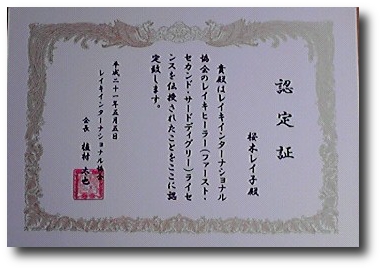 認定証
桜木レイ子殿
貴殿はレイキインターナショナル
協会のレイキヒーラー(ファースト・
セカンド・サードディグリー)ライセ
ンスを伝授されたことをここに認
定致します。
平成二十一年五月五日
レイキインターナショナル協会
会長 植村 大也